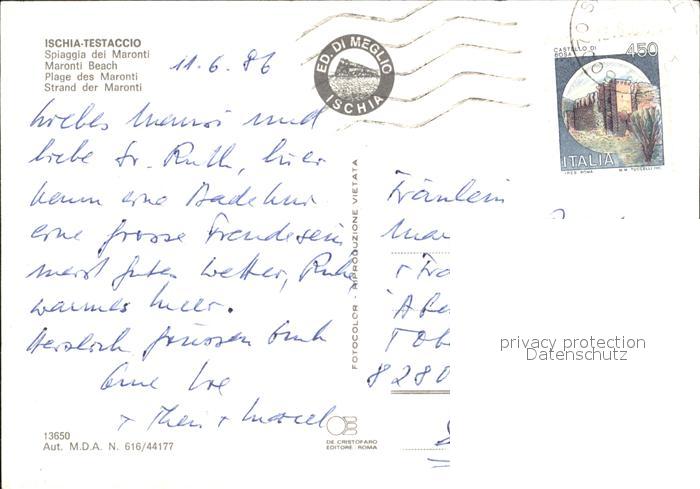 ISCHIA-TESTACCIO
Spiaggia dei Maronti
Maronti Beach
Plage des Maronti
Strand der Maronti
11.6.86
ED. DI MEGLIO
ISCHIA
CASTELLO DI
ROSA
450
ITALIA
I.P.Z.S. ROMA
M.M. TUCCELLI
Liebes und
liebe Fr. Ruth, hier
kann eine Badekur
eine grosse Freude sein
meist gutes Wetter, Ruhe,
warmes Meer.
Herzlich grüssen Euch
+ Marcel
FOTOCOLOR - RIPRODUZIONE VIETATA
Fräulein
8280
privacy protection
Datenschutz
13650
Aut. M.D.A. N. 616/44177
DE CRISTOFARO
EDITORE - ROMA